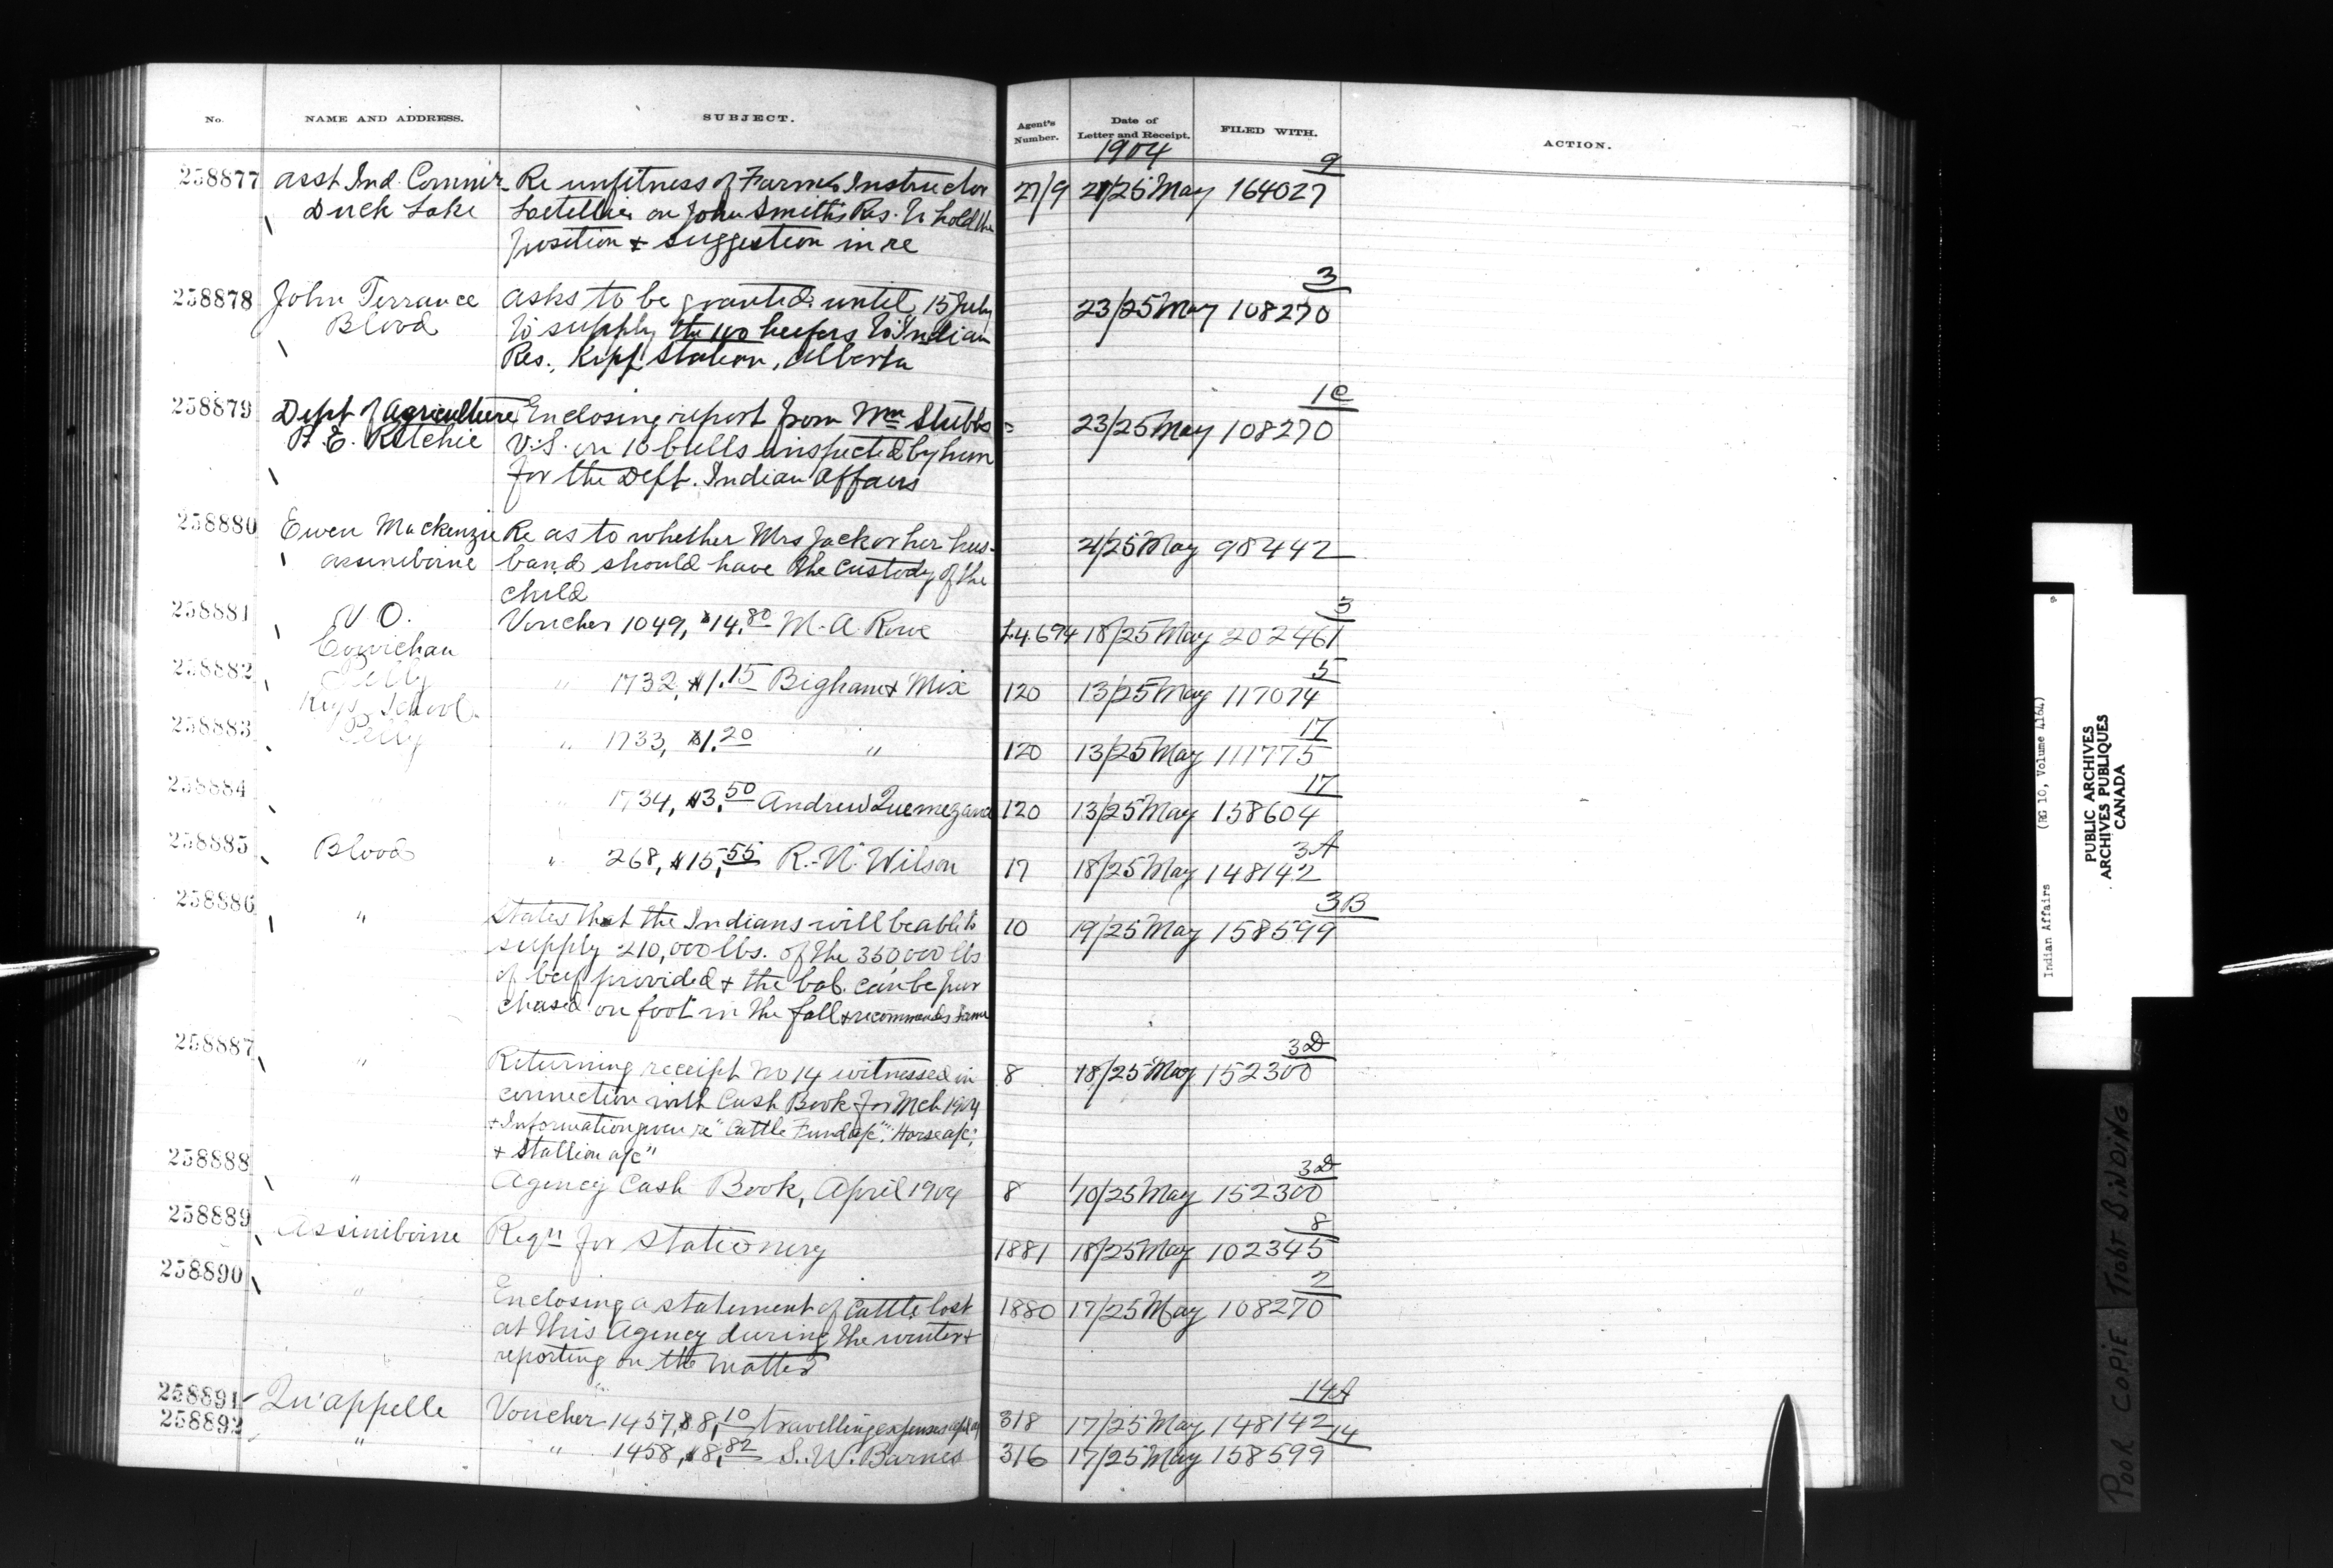 No. NAME AND ADDRESS. SUBJECT. Agent's Number. Date of Letter and Receipt. FILED WITH. ACTION.
1904
9
258877 Asst Ind. Commr Re unfitness of Farmer Instructor 27/9 21/25 May 164027
Duck Lake Letellier on John Smith's Res. to hold the
position & suggestion in re
3
258878 John Terrance asks to be granted until 15 July 23/25 May 108270
Blood to supply the 140 heifers to Indian
Res., Kipp Station, Alberta
1C
258879 Dept of Agriculture Enclosing report from Wm Stubbs 23/25 May 108270
A. E. Ritchie V.S. on 10 bulls inspected by him
for the Dept. Indian Affairs
258880 Ewen Mackenzie Re as to whether Mrs Jack or her hus- 21/25 May 98442
assiniboine band should have the custody of the
child
3
258881 V O. Voucher 1049, $14.80 M. A. Rowe L.4.694 18/25 May 202461
Cowichan
5
258882 Pelly " 1732, $1.15 Bigham & Mix 120 13/25 May 117074
Keys School
17
258883 Pelly " 1733, $1.20 " 120 13/25 May 111775
17
258884 " " 1734, $3.50 Andrew Quemezance 120 13/25 May 158604
3A
258885 Blood " 268, $15.55 R. N. Wilson 17 18/25 May 148142
3B
258886 " States that the Indians will be able to 10 19/25 May 158599
supply 210,000 lbs. of the 350000 lbs
of beef provided & the bal. can be pur
chased on foot in the fall & recommends same
3D
258887 " Returning receipt No 14 witnessed in 8 18/25 May 152300
connection with Cash Book for Mch 1904
& Information given re "Cattle Fund a/c", "Horse a/c",
& Stallion a/c"
3D
258888 " Agency Cash Book, April 1904 8 10/25 May 152300
8
258889 Assiniboine Reqn for stationery 1881 18/25 May 102345
2
258890 " Enclosing a statement of Cattle lost 1880 17/25 May 108270
at this Agency during the winter &
reporting on the matter
14A
258891 Qu'appelle Voucher 1457, $8.10 travelling expenses 318 17/25 May 148142
14
258892 " " 1458, $8.82 S. W. Barnes 316 17/25 May 158599
Indian Affairs (RG 10, Volume 4164)
PUBLIC ARCHIVES
ARCHIVES PUBLIQUES
CANADA
POOR COPIE TIGHT BINDING